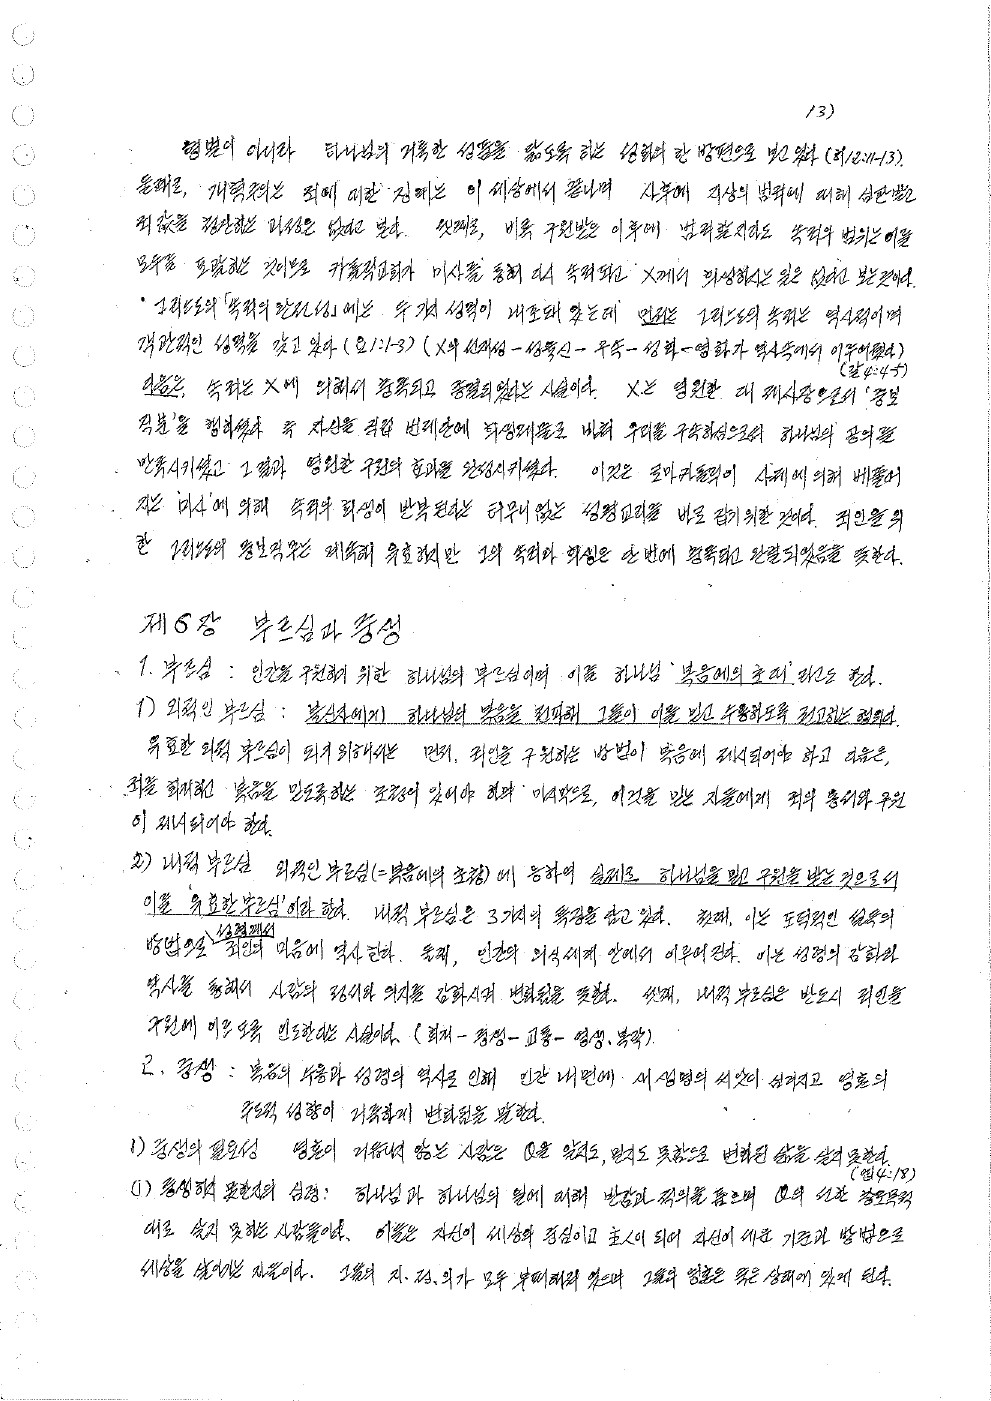 13)
형벌이 아니라 하나님의 거룩한 성품을 닮도록 하는 성화의 한 방편으로 보고 있다 (히12:11-13).
둘째로, 개혁주의는 죄에 대한 징계는 이 세상에서 끝나며 사후에 지상의 범죄에 대해 심판받고
죄값을 정산하는 과정은 없다고 본다. 셋째로, 비록 구원받은 이후에 범죄할지라도 속죄의 범위는 이를
모두를 포괄하는 것이므로 카톨릭교회가 미사를 통해 다시 속죄되고 X께서 희생하시는 일은 없다고 보는것이다.
• 그리스도의 「속죄의 완전성」에는 두 가지 성격이 내포돼 있는데 먼저는 그리스도의 속죄는 역사적이며
객관적인 성격을 갖고 있다 (요1:1-3) (X의 선재성 - 성육신 - 구속 - 성화 - 영화가 역사속에서 이루어졌다)
(갈4:4-5)
다음은, 속죄는 X에 의해서 종족되고 종결되었다는 사실이다. X는 영원한 대제사장으로서 '중보
직분'을 행하셨다 즉 자신을 직접 번제단에 희생제물로 바쳐 우리를 구속하심으로써 하나님의 공의를
만족시키셨고 그 결과 영원한 구원의 효과를 완성시키셨다. 이것은 로마카톨릭이 사제에 의해 베풀어
지는 '미사'에 의해 속죄의 희생이 반복된다는 터무니없는 성령교리를 바로 잡기 위한 것이다. 죄인을 위
한 그리스도의 중보직무는 계속해 유효하지만 그의 속죄와 희생은 단번에 종족되고 완결되었음을 뜻한다.
제6장 부르심과 중생
1. 부르심 : 인간을 구원하기 위한 하나님의 부르심이며 이를 하나님 '복음에의 초대'라고도 한다.
1) 외적인 부르심 : 불신자에게 하나님의 복음을 전파해 그들이 이를 믿고 수용하도록 권고하는 행위다.
유효한 외적 부르심이 되기 위해서는 먼저, 죄인을 구원하는 방법이 복음에 제시되어야 하고 다음은,
죄를 회개하고 복음을 믿도록하는 초청이 있어야 하며 마지막으로, 이것을 믿는 자들에게 죄의 용서와 구원
이 제시되어야 한다.
2) 내적 부르심 외적인 부르심(=복음에의 초청)에 응하여 실제로 하나님을 믿고 구원을 받는 것으로서
이를 '유효한 부르심'이라 한다. 내적 부르심은 3가지의 특징을 갖고 있다. 첫째, 이는 도덕적인 설득의
성령께서
방법으로 죄인의 마음에 역사한다. 둘째, 인간의 의식세계 안에서 이루어진다. 이는 성령의 감화와
역사를 통해서 사람의 정서와 의지를 감화시켜 변화됨을 뜻한다. 셋째, 내적 부르심은 반드시 죄인을
구원에 이르도록 인도한다는 사실이다. (회개 - 중생 - 교통 - 영생, 복락).
2. 중생 : 복음의 수용과 성령의 역사로 인해 인간 내면에 새 생명의 씨앗이 심겨지고 영혼의
주도적 성향이 거룩하게 변화됨을 말한다.
1) 중생의 필요성 영혼이 거듭나지 않는 사람은 Q을 알지도, 믿지도 못함으로 변화된 삶을 살지 못한다.
(엡4:18)
(1) 중생하지 못한자의 심령 : 하나님과 하나님의 일에 대해 반감과 적의를 품으며 Q의 선한 창조목적
대로 살지 못하는 사람들이다. 이들은 자신이 세상의 중심이고 호人이 되어 자신이 세운 기준과 방법으로
세상을 살아가는 자들이다. 그들의 지.정.의가 모두 부패해져 있으며 그들의 영혼은 죽은 상태에 있게 된다.